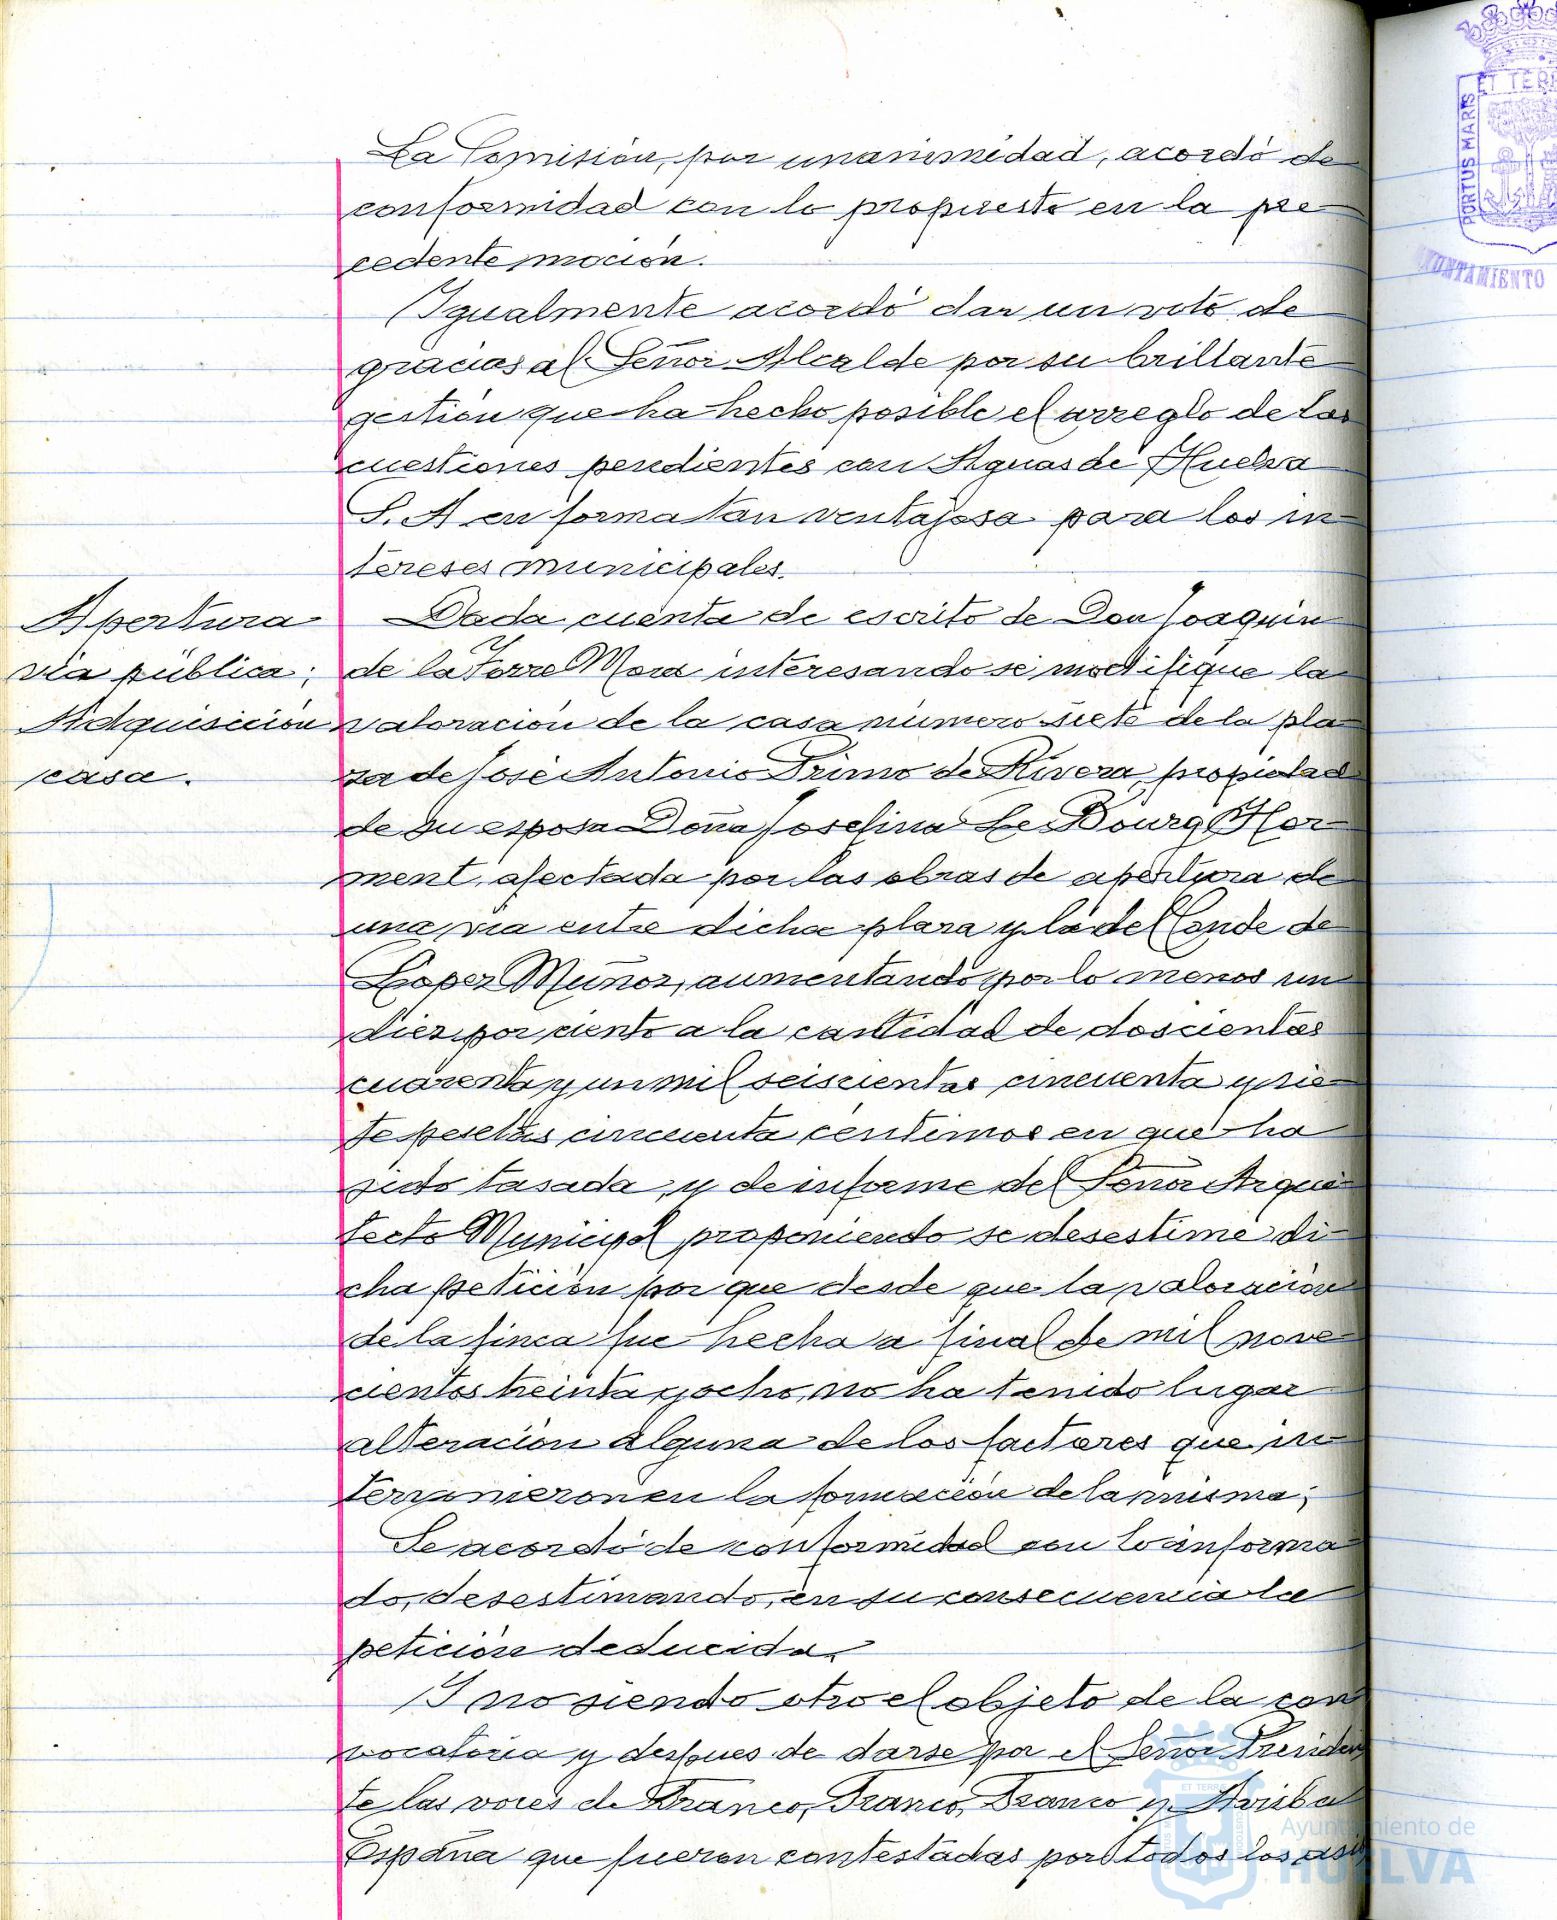 La Comisión, por unanimidad, acordó de
conformidad con lo propuesto en la pre
cedente moción.
Igualmente acordó dar un voto de
gracias al Señor Alcalde por su brillante
gestión que ha hecho posible el arreglo de las
cuestiones pendientes con Aguas de Huelva
S. A en forma tan ventajosa para los in
tereses municipales.
Apertura
vía pública;
Adquisición
casa.
Dada cuenta de escrito de Don Joaquin
de la Torre Mora interesando se modifique la
valoración de la casa número siete de la pla
za de José Antonio Primo de Rivera, propiedad
de su esposa Doña Josefina Le Bourg Hor
ment, afectada por las obras de apertura de
una vía entre dicha plaza y la del Conde de
Lopez Muñoz, aumentando por lo menos un
diez por ciento a la cantidad de doscientas
cuarenta y un mil seiscientas cincuenta y sie
te pesetas cincuenta centimos en que ha
sido tasada, y de informe del Señor Arqui
tecto Municipal proponiendo se desestime di
cha petición por que desde que la valoración
de la finca fue hecha a final de mil nove
cientos treinta y ocho, no ha tenido lugar
alteración alguna de los factores que in
tervinieron en la formación de la misma;
Se acordó de conformidad con lo informa
do, desestimando, en su consecuencia la
petición deducida.
Y no siendo otro el objeto de la con
vocatoria y despues de darse por el Señor Presiden
te las voces de Franco, Franco, Franco y Arriba
España que fueron contestadas por todos los asis
PORTUS MARIS
ET TERR
UNTAMIENTO
ET TERR
Ayuntamiento de
HUELVA